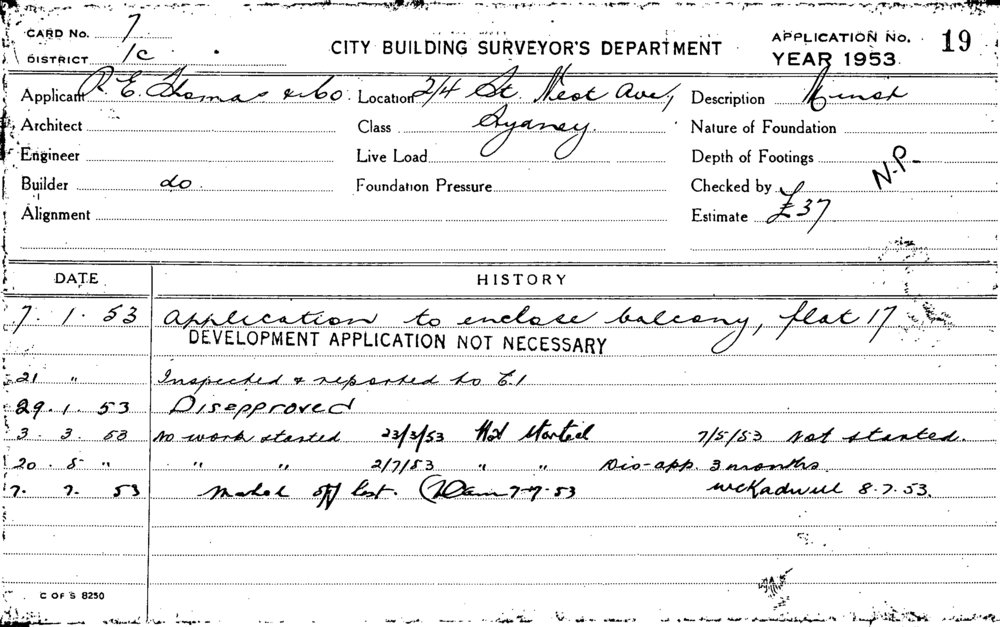 CARD No. 7
DISTRICT 1c
CITY BUILDING SURVEYOR'S DEPARTMENT
APPLICATION No. 19
YEAR 1953
Applicant R. E. Thomas & Co. Location 2/4 St. Neot Ave, Description
Architect Class Sydney. Nature of Foundation
Engineer Live Load Depth of Footings N.P.
Builder do Foundation Pressure Checked by
Alignment Estimate £37
DATE HISTORY
7. 1. 53 Application to enclose balcony, flat 17
DEVELOPMENT APPLICATION NOT NECESSARY
21 " Inspected & reported to
29. 1. 53 Disapproved
3. 3. 53 No work started 23/3/53 Not started 7/5/53 Not started.
20. 5 " " " 2/7/53 " " Dis-app. 3 months.
7. 7. 53 off list. 7-7-53 8.7.53.
C OF S 8250